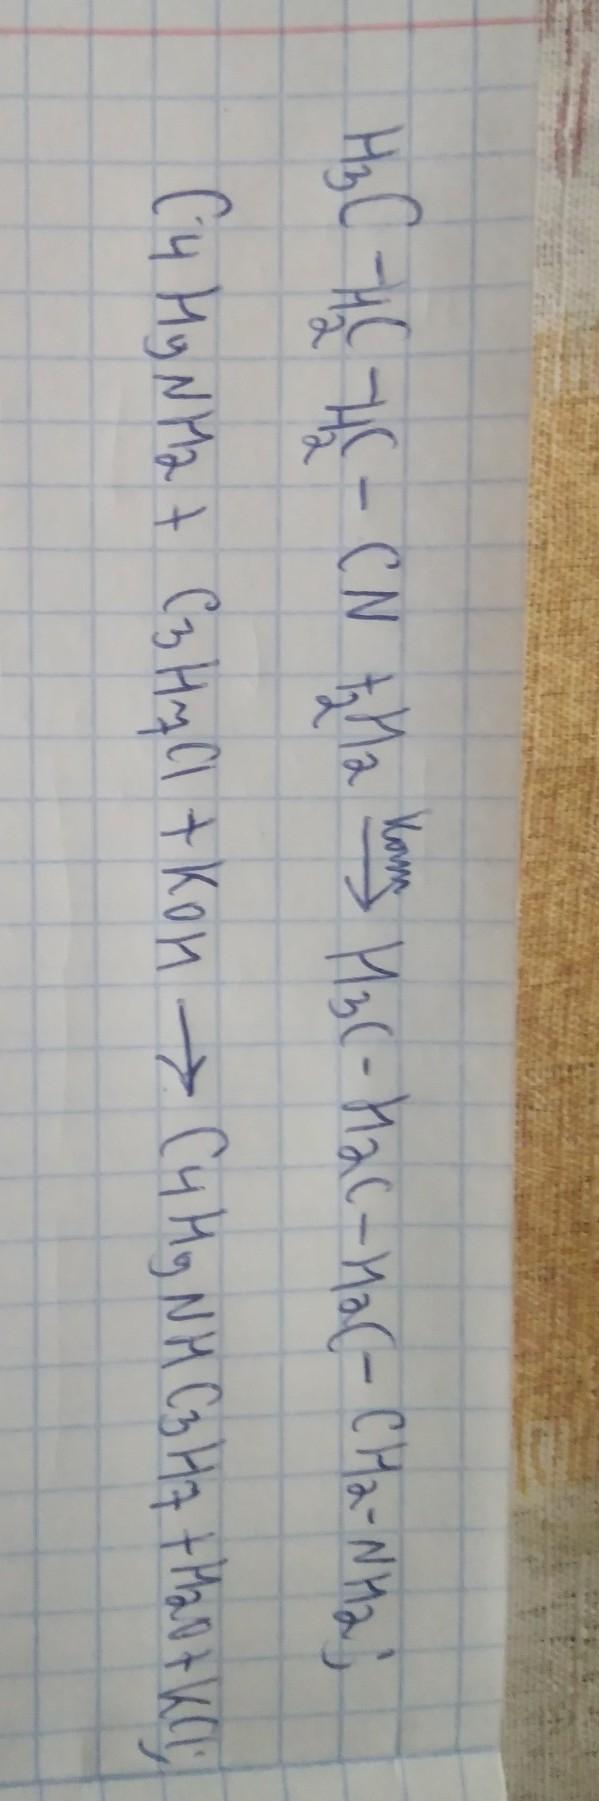 H3C-H2C-H2C-CN+2H2 кат→ H3C-H2C-H2C-CH2-NH2;
C4H9NH2+C3H7Cl+KOH→C4H9NHC3H7+H2O+KCl;